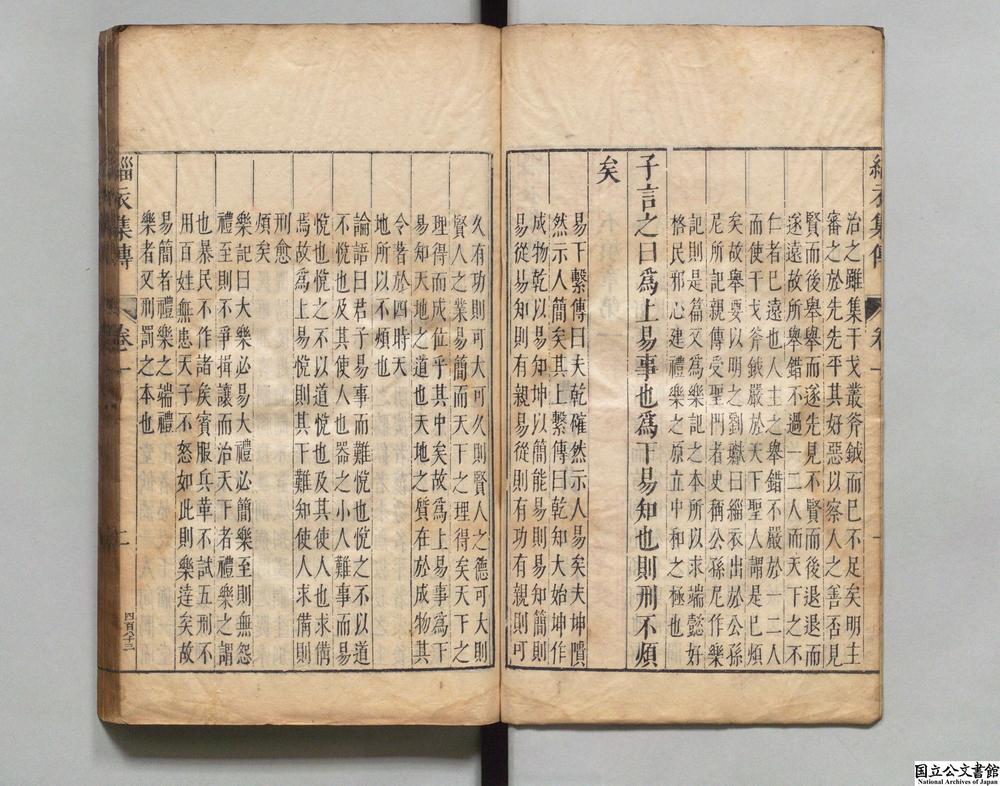 緇衣集傳 卷一
治之雖集干戈叢斧鉞而已不足矣明主
審之於先先平其好惡以察人之善否見
賢而後舉舉而遂先見不賢而後退退而
遂遠故所舉錯不過一二人而天下之不
仁者已遠也人主之舉錯不嚴於一二人
而使干戈斧鉞嚴於天下聖人謂是已煩
矣故舉要以明之劉瓛曰緇衣出於公孫
尼所記親傳受聖門者史稱公孫尼作樂
記則是篇又為樂記之本所以求端懿好
格民邪心建禮樂之原立中和之極也
子言之曰為上易事也為下易知也則刑不煩
矣
易下繫傳曰夫乾確然示人易矣夫坤隤
然示人簡矣其上繫傳曰乾知大始坤作
成物乾以易知坤以簡能易則易知簡則
易從易知則有親易從則有功有親則可
久有功則可大可久則賢人之德可大則
賢人之業易簡而天下之理得矣天下之
理得而成位乎其中矣故為上易事為下
易知天地之道也天地之質在於成物其
令著於四時天
地所以不煩也
論語曰君子易事而難悅也悅之不以道
不悅也及其使人也器之小人難事而易
悅也悅之不以道悅也及其使人也求備
焉故為上易悅則其下難知使人求備則
刑愈
煩矣
樂記曰大樂必易大禮必簡樂至則無怨
禮至則不爭揖讓而治天下者禮樂之謂
也暴民不作諸矦賓服兵革不試五刑不
用百姓無患天子不怒如此則樂達矣故
易簡者禮樂之端禮
樂者又刑罰之本也
緇衣集傳 卷一 二 四百八十三
国立公文書館
National Archives of Japan